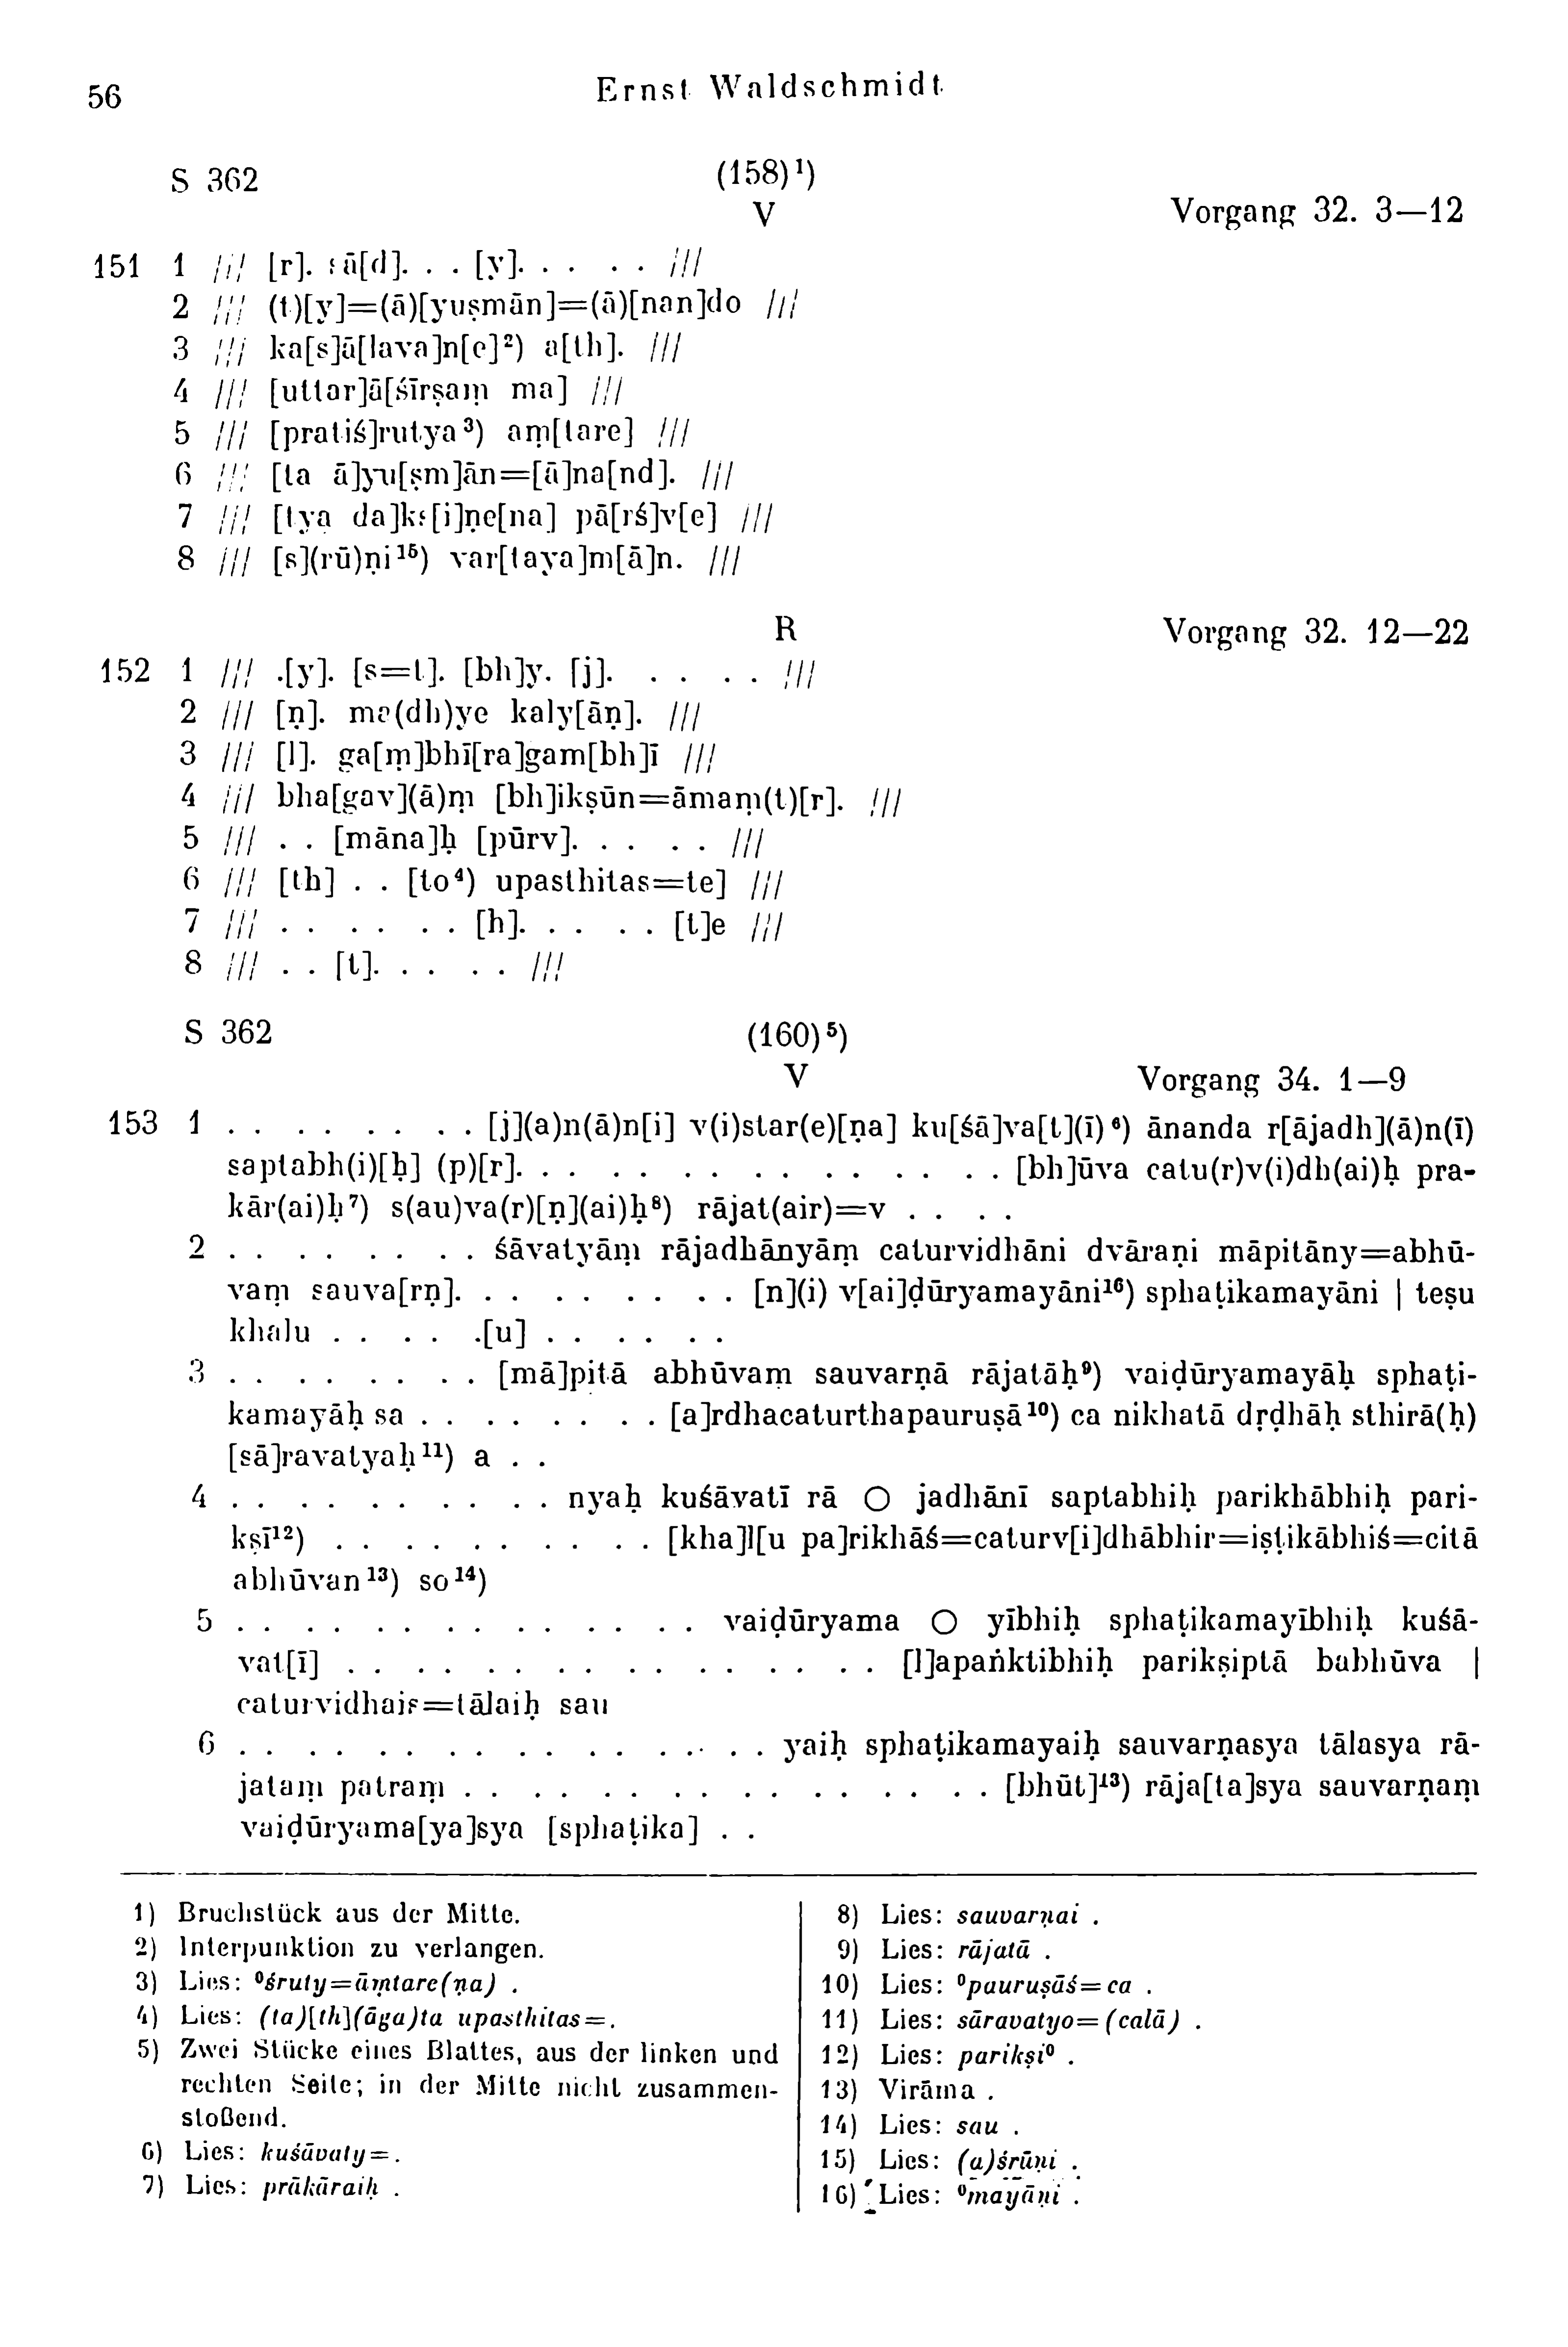 56
Ernst Waldschmidt
S 362 (158)¹)
V
Vorgang 32. 3—12
151 1 /// [r]. sā[d]. . . [y]. . . . . . ///
2 /// (t)[y]=(ā)[yuṣmān]=(ā)[nan]do ///
3 /// ka[s]ā[lava]n[e]²) a[th]. ///
4 /// [uttar]ā[śīrṣaṃ ma] ///
5 /// [pratiś]rutya³) aṃ[tare] ///
6 /// [ta ā]yu[ṣm]ān=[ā]na[nd]. ///
7 /// [tya da]kṣ[i]ṇe[na] pā[rś]v[e] ///
8 /// [s](rū)ṇi¹⁵) var[taya]m[ā]n. ///
R
Vorgang 32. 12—22
152 1 /// .[y]. [s=t]. [bh]y. [j]. . . . . ///
2 /// [ṇ]. ma(dh)ye kaly[āṇ]. ///
3 /// [l]. ga[ṃ]bhī[ra]gam[bh]ī ///
4 /// bha[gav](ā)ṃ [bh]ikṣūn=āmaṃ(t)[r]. ///
5 /// . . [māna]ḥ [pūrv]. . . . . ///
6 /// [th] . . [to⁴) upasthitas=te] ///
7 /// . . . . . . [h]. . . . . [t]e ///
8 /// . . [t]. . . . . ///
S 362 (160)⁵)
V
Vorgang 34. 1—9
153 1 . . . . . . . . [j](a)n(ā)n[i] v(i)star(e)[ṇa] ku[śā]va[t](ī)⁶) ānanda r[ājadh](ā)n(ī)
saptabh(i)[ḥ] (p)[r]. . . . . . . . . . . . . . . [bh]ūva catu(r)v(i)dh(ai)ḥ pra-
kār(ai)ḥ⁷) s(au)va(r)[ṇ](ai)ḥ⁸) rājat(air)=v . . . .
2 . . . . . . . . śāvatyāṃ rājadhānyāṃ caturvidhāni dvāraṇi māpitāny=abhū-
vaṃ sauva[rṇ]. . . . . . . . . [n](i) v[ai]ḍūryamayāni¹⁶) sphaṭikamayāni | teṣu
khalu . . . . .[u] . . . . . .
3 . . . . . . . . [mā]pitā abhūvaṃ sauvarṇā rājatāḥ⁹) vaiḍūryamayāḥ sphaṭi-
kamayāḥ sa . . . . . . . . [a]rdhacaturthapauruṣā¹⁰) ca nikhatā dṛḍhāḥ sthirā(ḥ)
[sā]ravatyaḥ¹¹) a . .
4 . . . . . . . . . . nyaḥ kuśāvatī rā ○ jadhānī saptabhiḥ parikhābhiḥ pari-
kṣī¹²) . . . . . . . . . . [kha]l[u pa]rikhāś=caturv[i]dhābhir=iṣṭikābhiś=citā
abhūvan¹³) so¹⁴)
5 . . . . . . . . . . . . . . vaiḍūryama ○ yībhiḥ sphaṭikamayībhiḥ kuśā-
vat[ī] . . . . . . . . . . . . . . . . [l]apaṅktibhiḥ parikṣiptā babhūva |
caturvidhais=tālaiḥ sau
6 . . . . . . . . . . . . . . . . yaiḥ sphaṭikamayaiḥ sauvarṇasya tālasya rā-
jataṃ patraṃ . . . . . . . . . . . . . . . . [bhūt]¹³) rāja[ta]sya sauvarṇaṃ
vaiḍūryama[ya]sya [sphaṭika] . .
1) Bruchstück aus der Mitte.
2) Interpunktion zu verlangen.
3) Lies: ⁰śruty=āṃtare(ṇa) .
4) Lies: (ta)[th](āga)ta upasthitas=.
5) Zwei Stücke eines Blattes, aus der linken und
rechten Seite; in der Mitte nicht zusammen-
stoßend.
6) Lies: kuśāvaty=.
7) Lies: prākāraiḥ .
8) Lies: sauvarṇai .
9) Lies: rājatā .
10) Lies: ⁰pauruṣāś=ca .
11) Lies: sāravatyo=(calā) .
12) Lies: parikṣi⁰ .
13) Virāma .
14) Lies: sau .
15) Lies: (a)śrūṇi .
16) Lies: ⁰mayāṇi .